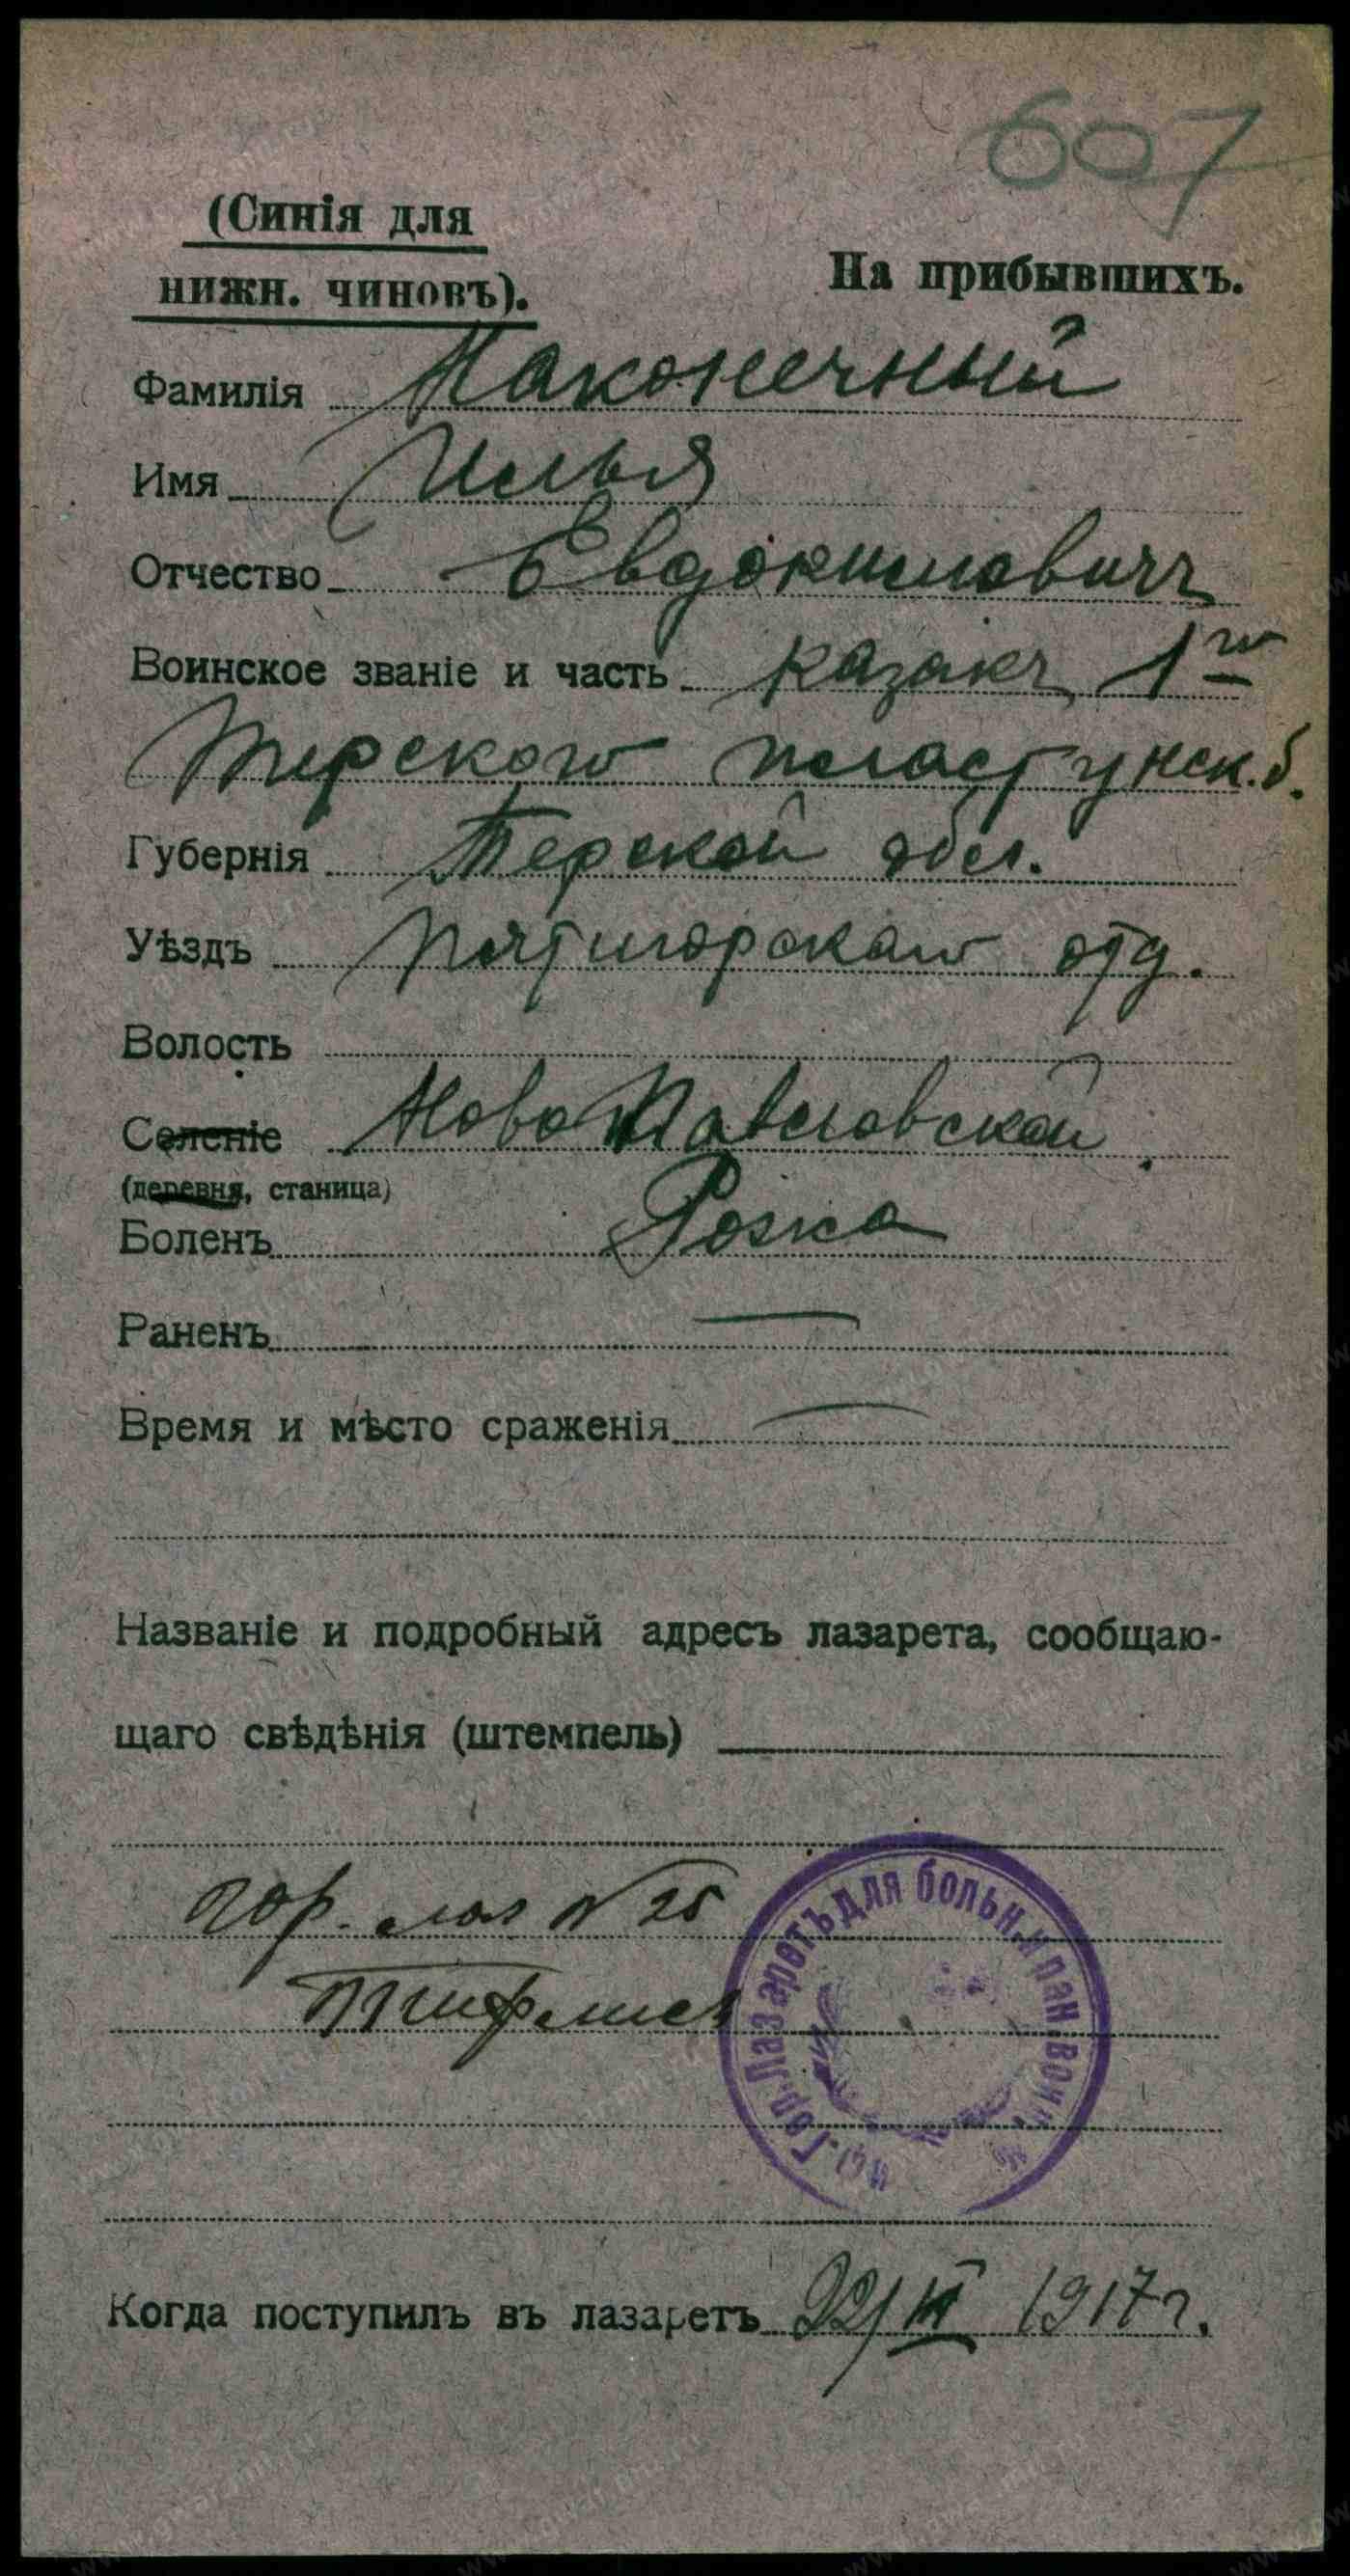 607
(Синія для
нижн. чиновъ).
На прибывшихъ.
Фамилія Наконечный
Имя Илья
Отчество Евдокимовичъ
Воинское званіе и часть казакъ 1го
Терскаго пластунск. б.
Губернія Терской обл.
Уѣздъ Пятигорскаго отд.
Волость
Селеніе Ново Павловской
(деревня, станица)
Боленъ Рожа
Раненъ —
Время и мѣсто сраженія —
Названіе и подробный адресъ лазарета, сообщаю-
щаго свѣдѣнія (штемпель)
Гор. лаз N 25
Тифлисъ
Гор. Лазаретъ для больн. и ран. воин.
Когда поступилъ въ лазаретъ 22/ 1917 г.